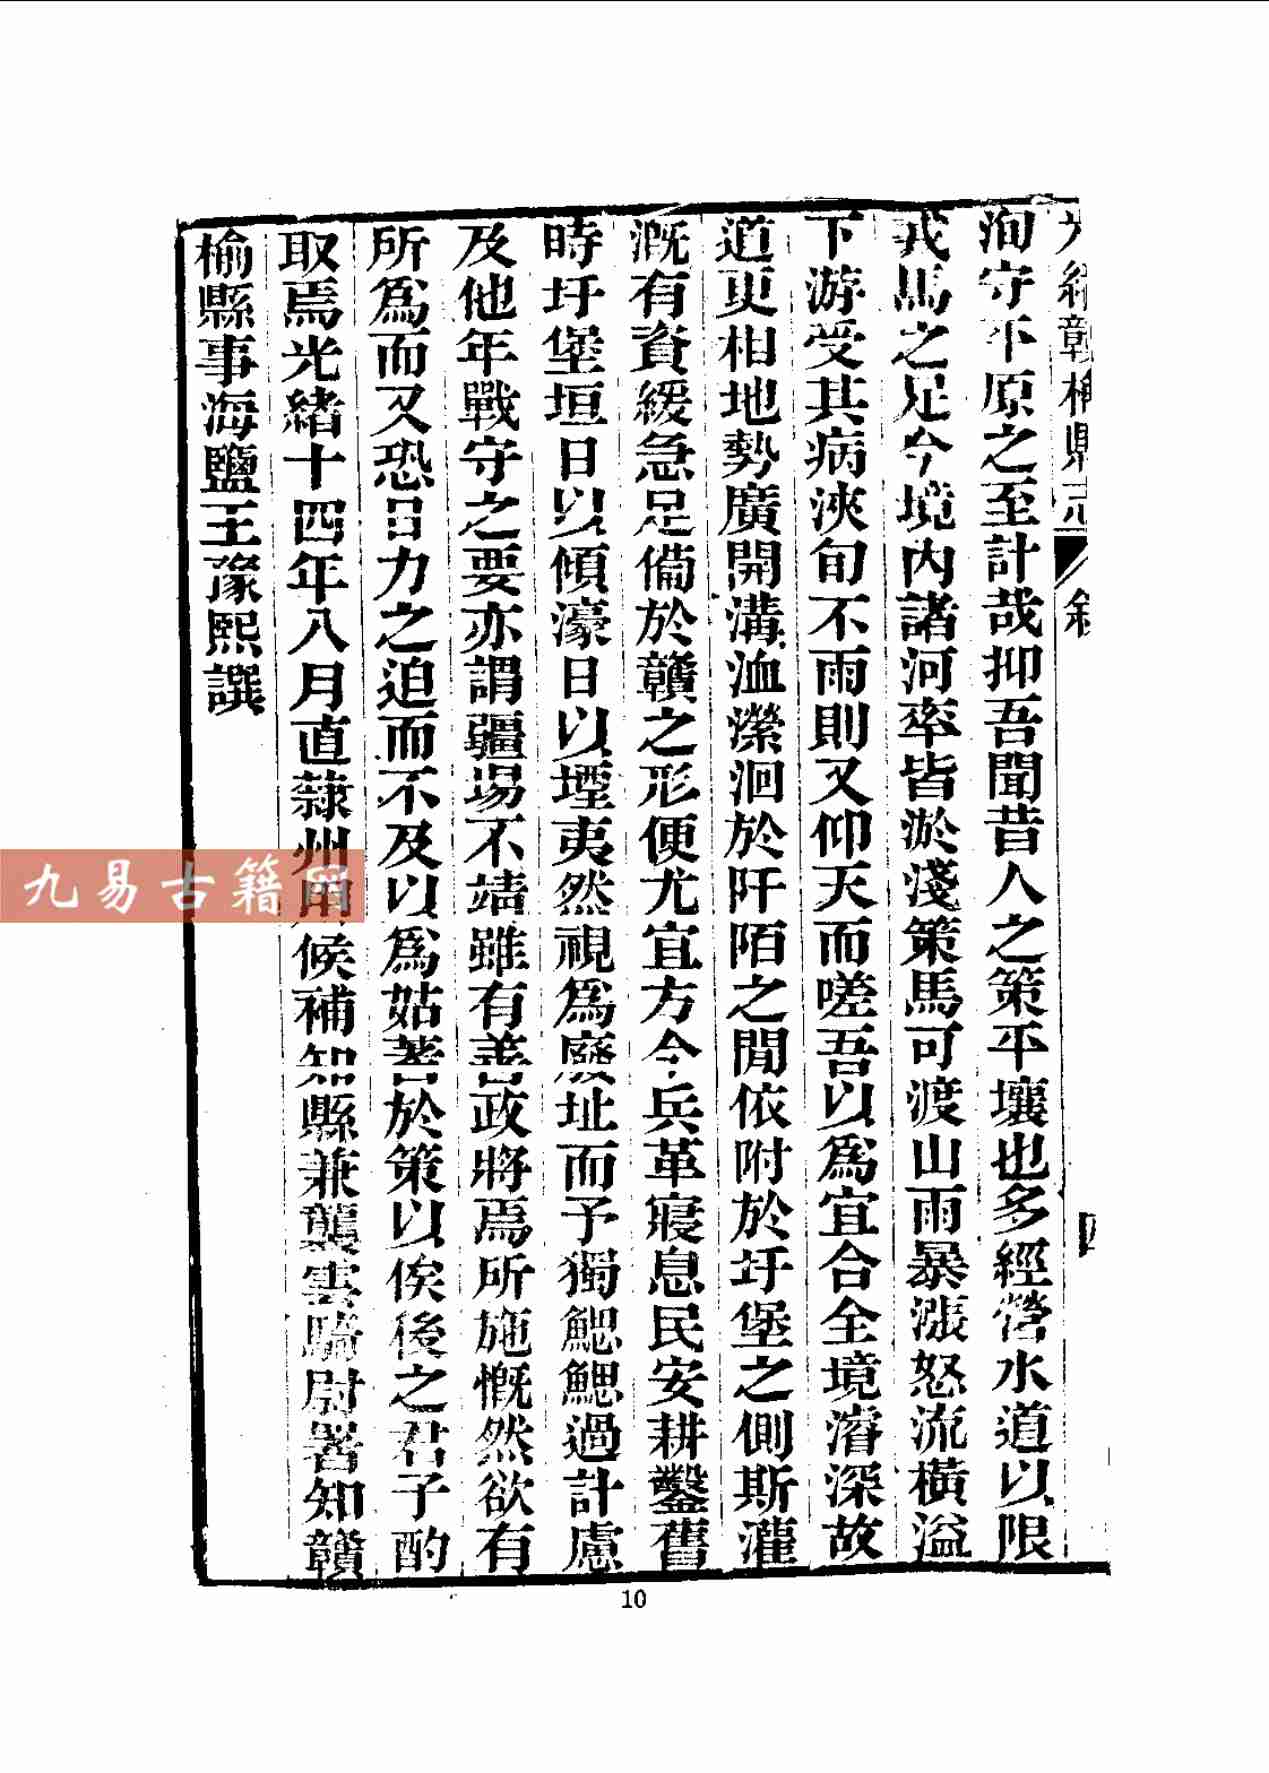 光緒贛榆縣志 敘 四
洵守平原之至計哉抑吾聞昔人之策平壤也多經營水道以限
戎馬之足今境內諸河率皆淤淺策馬可渡山雨暴漲怒流橫溢
下游受其病浹旬不雨則又仰天而嗟吾以爲宜合全境濬深故
道更相地勢廣開溝洫濚洄於阡陌之閒依附於圩堡之側斯灌
溉有資緩急足備於贛之形便尤宜方今兵革寢息民安耕鑿舊
時圩堡垣日以傾濠日以堙夷然視爲廢址而予獨鰓鰓過計慮
及他年戰守之要亦謂疆場不靖雖有善政將焉所施慨然欲有
所爲而又恐日力之迫而不及以爲姑著於策以俟後之君子酌
取焉光緒十四年八月直隸州用候補知縣兼襲雲騎尉署知贛
榆縣事海鹽王豫熙譔
九易古籍網
10